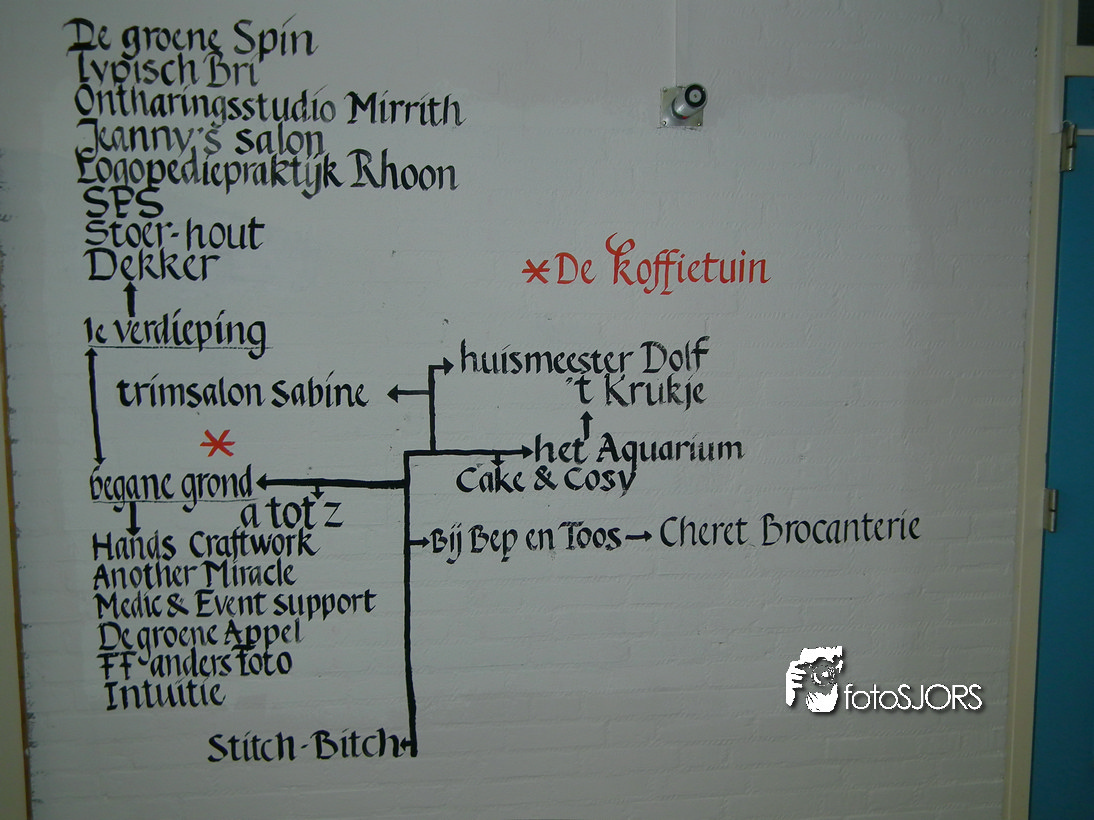 De groene Spin
Typisch Bri
Ontharingsstudio Mirrith
Jeanny's salon
Logopediepraktijk Rhoon
SPS
Stoer-hout
Dekker
*De Koffietuin
1e verdieping
huismeester Dolf
trimsalon Sabine
't Krukje
*
het Aquarium
begane grond
Cake & Cosy
a tot z
Bij Bep en Toos → Cheret Brocanterie
Hands Craftwork
Another Miracle
Medic & Event support
De groene Appel
FF-anders foto
Intuitie
fotoSJORS
Stitch-Bitch